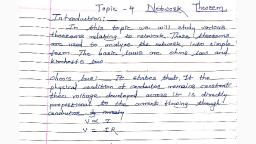 Topic - 4 Network Theorem
Introduction:-
In this topic we will study various
theorems relating to network. These theorems
are used to analyse the network into simple
form. The basic laws are ohms law and
kirchoff's law
ohms law:- It states that, If the
physical condition of conductor remains constant
then voltage developed across it is directly
propotional to the current flowing through
conductor
V ∝ I
V = IR